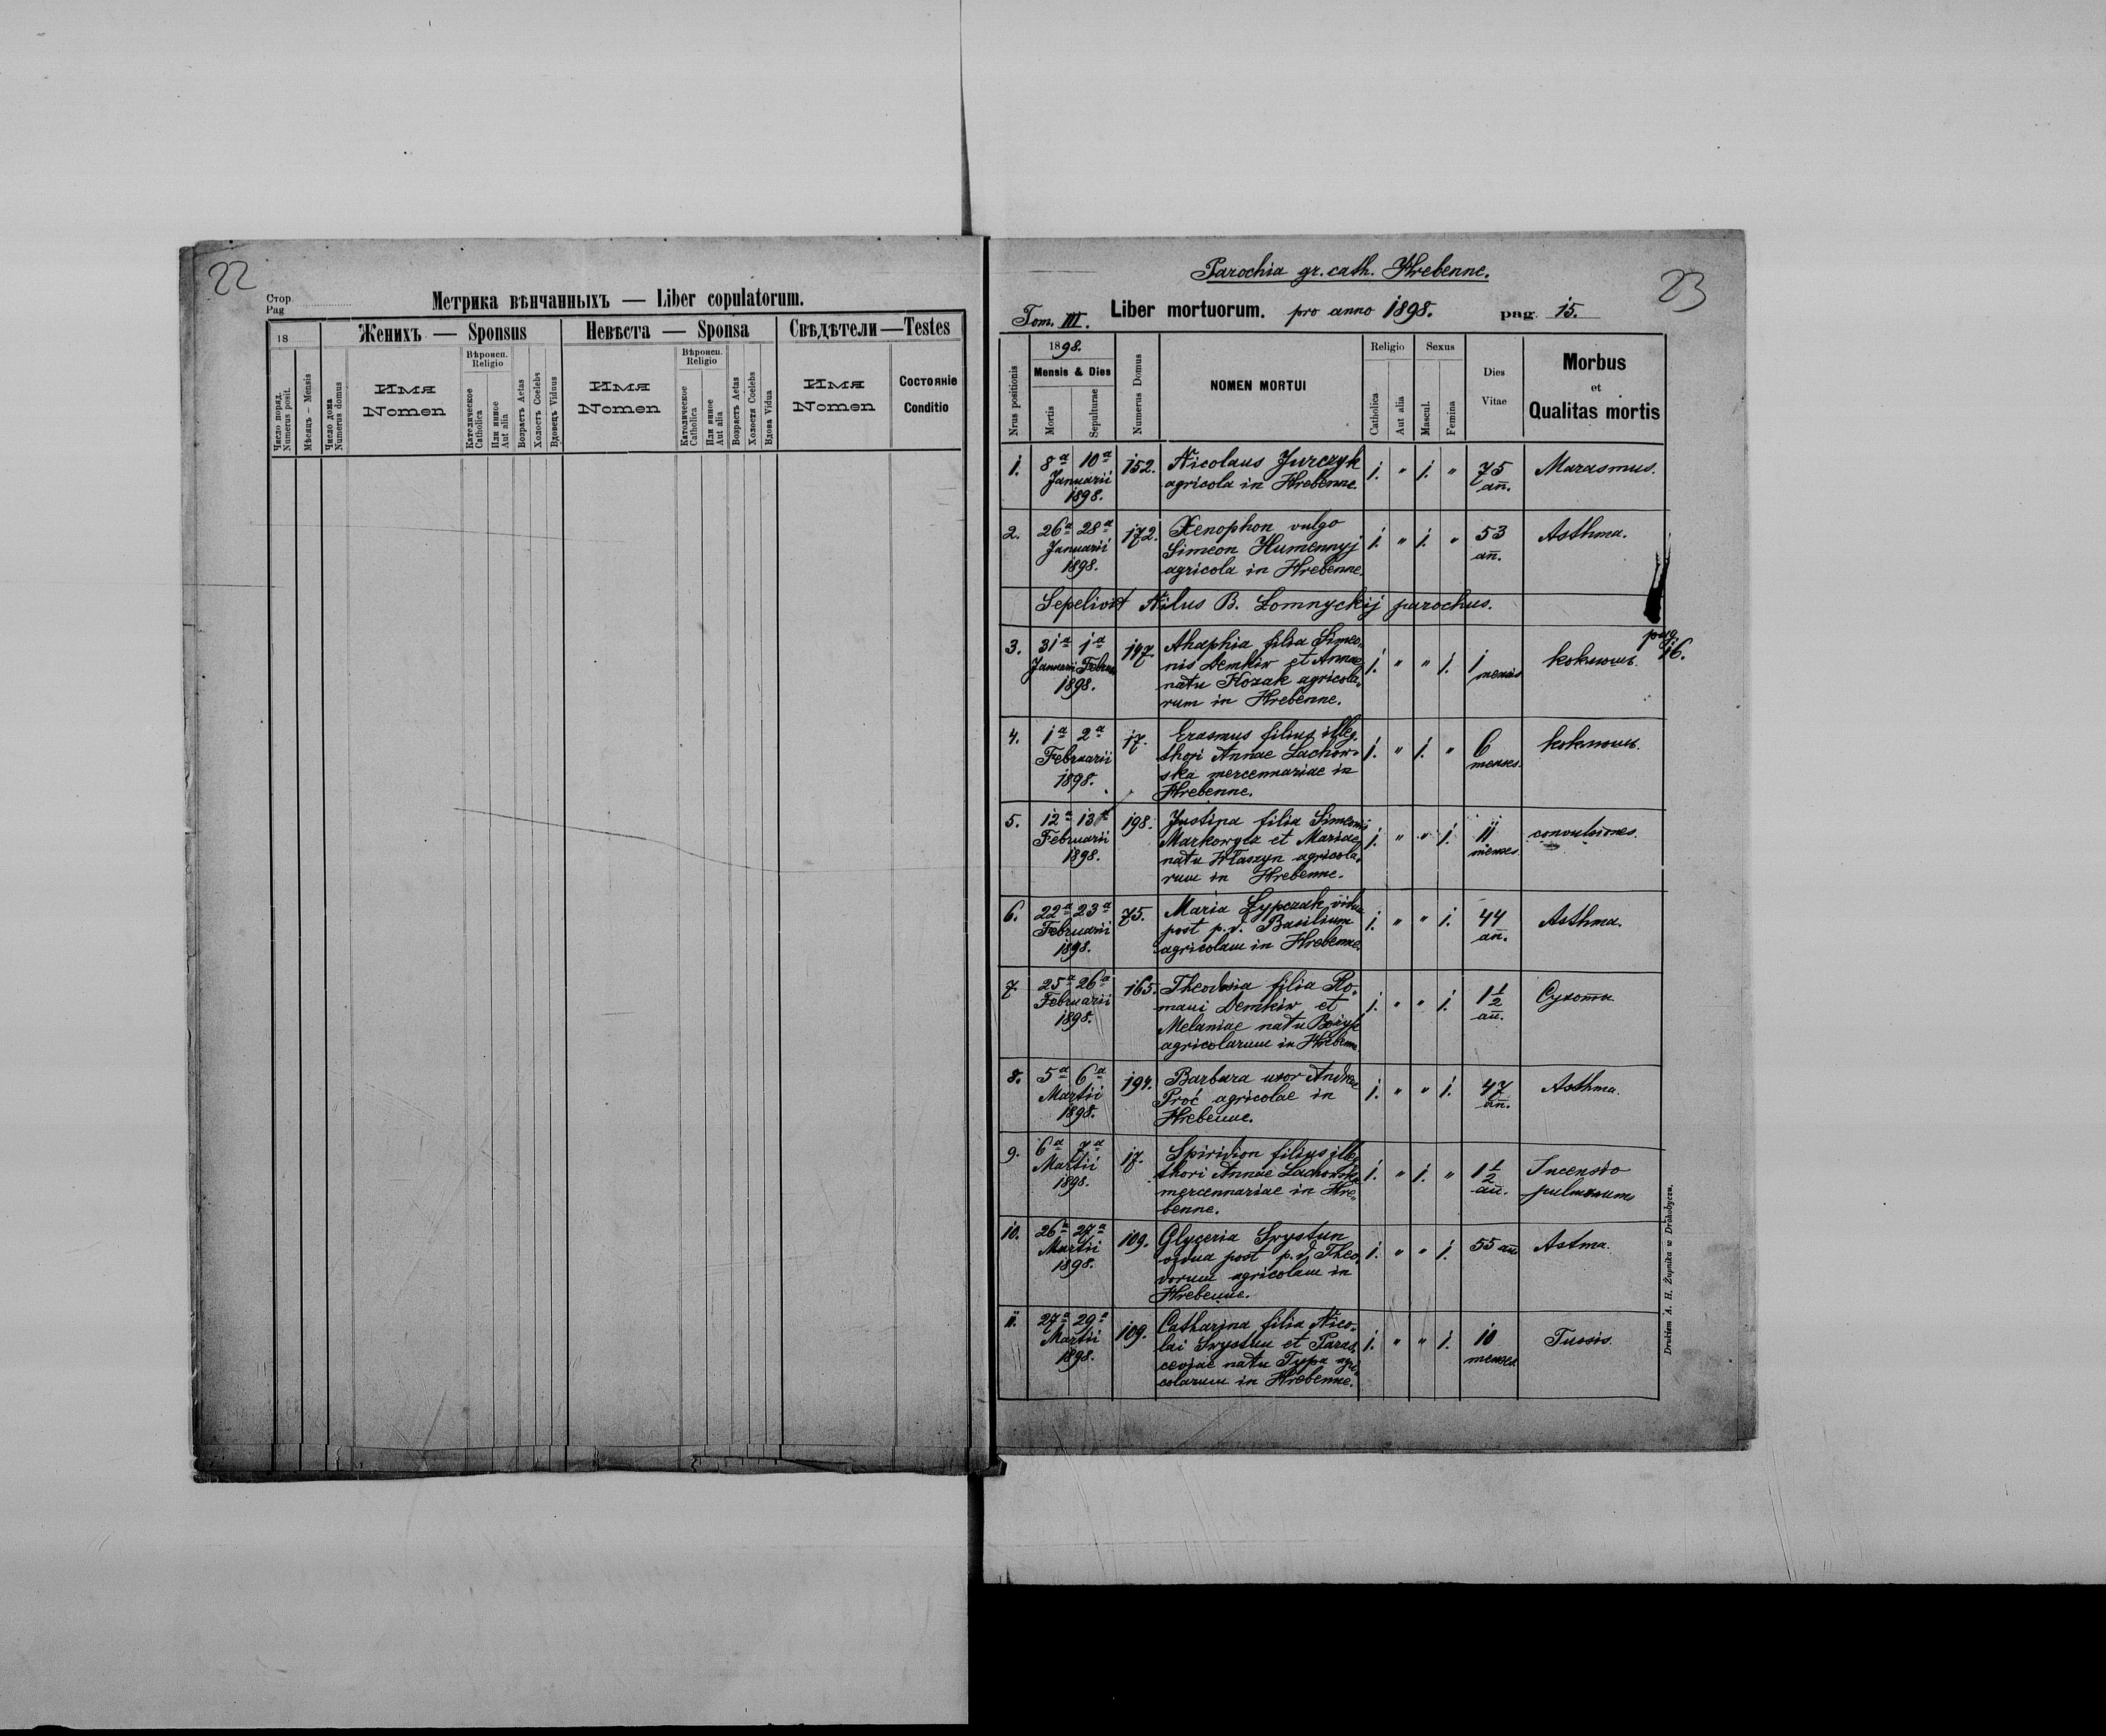 22
Стор.
Pag
Метрика вѣнчанныхъ — Liber copulatorum.
18
Женихъ — Sponsus
Невѣста — Sponsa
Свѣдѣтели — Testes
Число поряд.
Numerus posit.
Мѣсяцъ – Mensis
Число дома
Numerus domus
Имя
Nomen
Вѣроисп.
Religio
Католическое
Catholica
Или инное
Aut alia
Возрастъ Aetas
Холостъ Coelebs
Вдовецъ Viduus
Имя
Nomen
Вѣроисп.
Religio
Католическое
Catholica
Или инное
Aut alia
Возрастъ Aetas
Холостя Coelebs
Вдова Vidua
Имя
Nomen
Состояніе
Conditio
Parochia gr. cath. Hrebenne.
23
Tom. III. Liber mortuorum. pro anno 1898. pag. 15.
Nrus positionis
1898.
Mensis & Dies
Mortis
Sepulturae
Numerus Domus
NOMEN MORTUI
Religio
Catholica
Aut alia
Sexus
Mascul.
Femina
Dies
Vitae
Morbus
et
Qualitas mortis
1. 8a 10a Januarii 1898. 152. Nicolaus Jurczyk 1. " 1. " 75 an. Marasmus.
agricola in Hrebenne.
2. 26a 28a Januarii 1898. 172. Xenophon vulgo 1. " 1. " 53 an. Asthma.
Simeon Humennyj
agricola in Hrebenne.
Sepelivit Nilus B. Lomnyckij parochus.
pag.
16.
3. 31a 1a Januarii Febru 1898. 147. Ahaphia filia Simeo- 1. " " 1. 1 mensis коклюшъ.
nis Demkiw et Annae
natu Kozak agricola-
rum in Hrebenne.
4. 1a 2a Februarii 1898. 17. Erasmus filius illeg. 1. " 1. " 6 menses. коклюшъ.
thori Annae Lachow-
ska mercennariae in
Hrebenne.
5. 12a 13a Februarii 1898. 198. Justina filia Simeonis 1. " " 1. 11 menses. convulsiones.
Markowycz et Mariae
natu Właszyn agricola-
rum in Hrebenne.
6. 22a 23a Februarii 1898. 75. Maria Łypczak vidua 1. " " 1. 44 an. Asthma.
post p. d. Basilium
agricolam in Hrebenne.
7. 25a 26a Februarii 1898. 165. Theodosia filia Ro- 1. " " 1. 1 1/2 an. Сухоты.
mani Demkiw et
Melaniae natu
agricolarum in Hrebenne.
8. 5a 6a Martii 1898. 194. Barbara uxor Andreae 1. " " 1. 47 an. Asthma.
Proć agricolae in
Hrebenne.
9. 6a 7a Martii 1898. 17. Spiridion filius illeg. 1. " 1. " 1 1/2 an. Incensio pulmonum
thori Annae Lachowska
mercennariae in Hre-
benne.
10. 26a 27a Martii 1898. 109. Glyceria Swystun 1. " " 1. 55 an. Astma.
vidua post p. d. Theo-
dorum agricolam in
Hrebenne.
11. 27a 29a Martii 1898. 109. Catharina filia Nico- 1. " " 1. 10 menses. Tussis.
lai Swystun et Paras-
ceviae natu Typa agri-
colarum in Hrebenne.
Drukiem A. H. Żupnika w Drohobyczu.